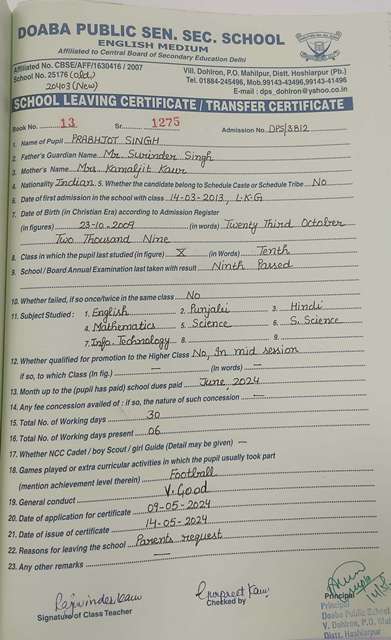 DOABA PUBLIC SEN. SEC. SCHOOL
ENGLISH MEDIUM
Affiliated to Central Board of Secondary Education Delhi
Affiliated No. CBSE/AFF/1630416 / 2007
School No. 25176 (old)
20403 (New)
Vill. Dohlron, P.O. Mahilpur, Distt. Hoshiarpur (Pb.)
Tel. 01884-245496, Mob.99143-43496,99143-41496
E-mail : dps_dohlron@yahoo.co.in
SCHOOL LEAVING CERTIFICATE / TRANSFER CERTIFICATE
Book No. 13 Sr. 1275 Admission No. DPS/3812
1. Name of Pupil PRABHJOT SINGH
2. Father's Guardian Name Mr. Surinder Singh
3. Mother's Name Mrs. Kamaljit Kaur
4. Nationality Indian 5. Whether the candidate belong to Schedule Caste or Schedule Tribe No
6. Date of first admission in the school with class 14-03-2013, L.K.G
7. Date of Birth (in Christian Era) according to Admission Register
(in figures) 23-10-2009 (in words) Twenty Third October
Two Thousand Nine
8. Class in which the pupil last studied (in figure) X (in Words) Tenth
9. School / Board Annual Examination last taken with result Ninth Passed
10. Whether failed, if so once/twice in the same class No
11. Subject Studied : 1. English 2. Punjabi 3. Hindi
4. Mathematics 5. Science 6. S. Science
7. Info. Technology 8. 9.
12. Whether qualified for promotion to the Higher Class No, In mid session
if so, to which Class (In fig.) — (In words) —
13. Month up to the (pupil has paid) school dues paid June, 2024
14. Any fee concession availed of : if so, the nature of such concession —
15. Total No. of Working days 30
16. Total No. of Working days present 06
17. Whether NCC Cadet / boy Scout / girl Guide (Detail may be given) —
18. Games played or extra curricular activities in which the pupil usually took part
(mention achievement level therein) Football
19. General conduct V. Good
20. Date of application for certificate 09-05-2024
21. Date of issue of certificate 14-05-2024
22. Reasons for leaving the school Parents request
23. Any other remarks —
Rajwinder Kaur
Signature of Class Teacher
Gurpreet Kaur
Checked by
Principal
Principal
Doaba Public School
V. Dohlron, P.O.
Distt. Hoshiarpur